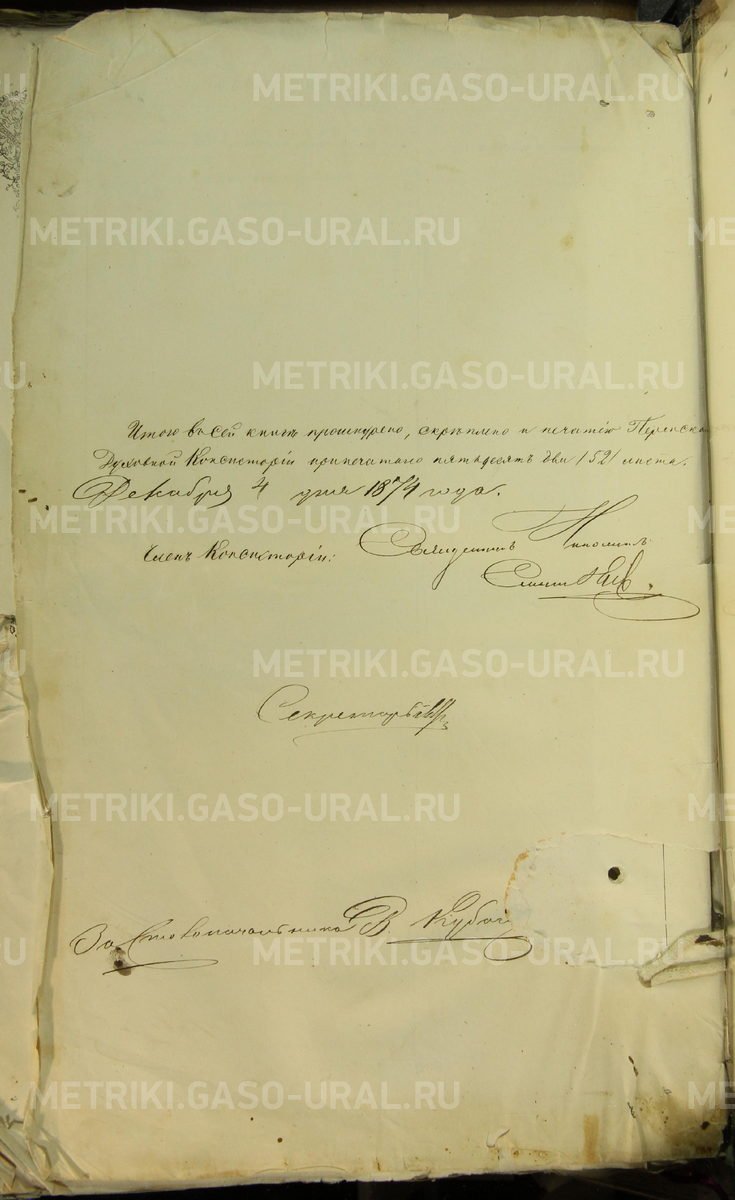 METRIKI.GASO-URAL.RU
METRIKI.GASO-URAL.RU
METRIKI.GASO-URAL.RU
Итого въ сей книгѣ прошнурено, скрѣплено и печатію Пермской
Духовной Консисторіи припечатано пятьдесятъ два /52/ листа.
Декабря 4 дня 1874 года.
METRIKI.GASO-URAL.RU
Членъ Консисторіи: Священникъ
METRIKI.GASO-URAL.RU
Секретарь
METRIKI.GASO-URAL.RU
За Столоначальника В.
METRIKI.GASO-URAL.RU
METRIKI.GASO-URAL.RU